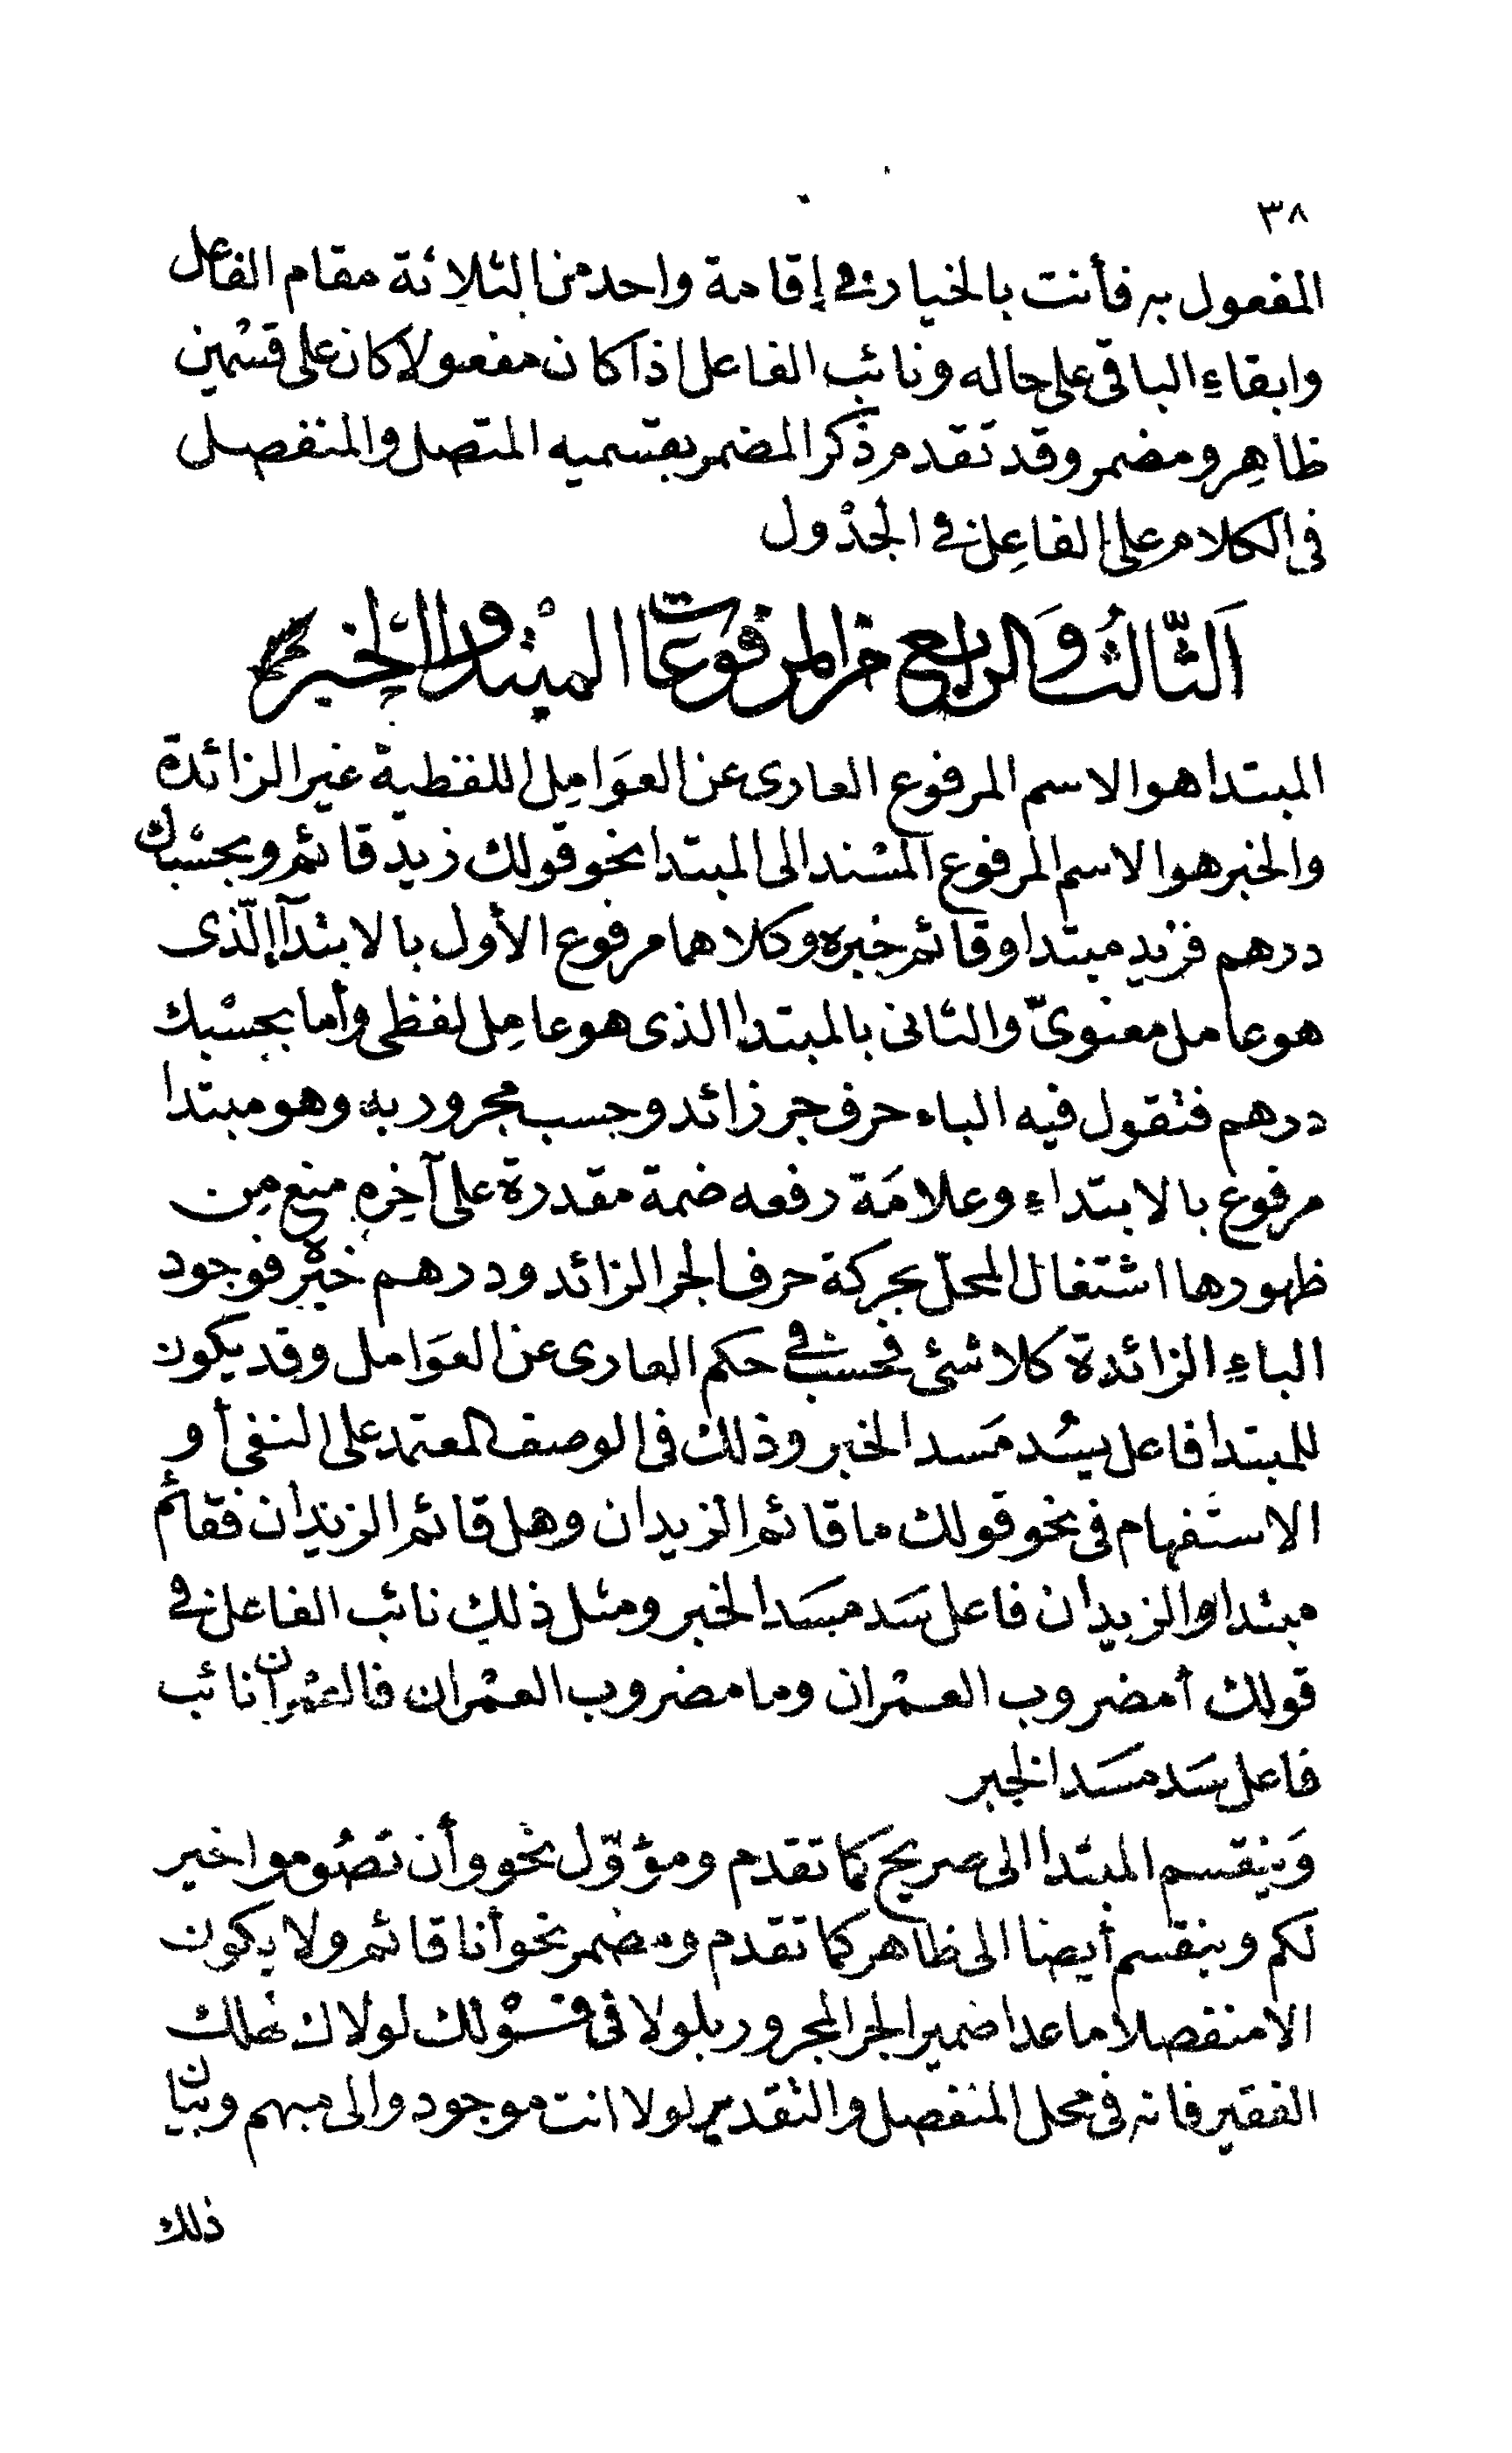 ٣٨
المفعول به فأنت بالخيار في إقامة واحد من الثلاثة مقام الفاعل
وابقاء الباقى على حاله ونائب الفاعل اذا كان مفعولا كان على قسْمين
ظاهِر ومضمر وقد تقدم ذكر المضمر بقسميه المتصل والمنفصل
فى الكلام على الفاعِل في الجدْول
اَلثّالثُ وَالرابع من المرفوعات المبْتدا والخبر
المبتدا هو الاسم المرفوع العارى عن العوَامِل اللفظية غير الزائدة
والخبر هو الاسم المرفوع المسْند الى المبتدا نحو قولك زيد قائم وبحسْبك
درهم فزيد مبتدا وقائم خبره وكلاهما مرفوع الأول بالابتدآء الّذى
هو عامل معنوىّ والثانى بالمبتدا الذى هو عامِل لفظى وأما بحسْبك
درهم فنقول فيه الباء حرف جر زائد وحسب مجرور به وهو مبتدا
مرفوع بالابتداء وعلامَة رفعه ضمة مقدرة على آخِرِه منع مِن
ظهورها اشتغال المحلّ بحركة حرف الجر الزائد ودرهم خبْره فوجود
الباءِ الزائدة كلاشئى فحسب في حكم العارى عن العوَامل وقد يكون
للمبتدا فاعل يسُد مَسد الخبر وذلك فى الوصف المعتمد على النفى أو
الاستفهام فى نحو قولك ما قائم الزيدان وهل قائم الزيدان فقائم
مبتدا والزيدان فاعل سَد مسَد الخبر ومثل ذلك نائب الفاعل في
قولك أمضروب العمْران وما مضروب العمْران فالعمْران نائب
فاعل سَد مسَد الخبر
وَينقسم المبتدا الى صريح كما تقدم ومؤوّل نحو وأن تصُوموا خير
لكم وينقسم أيضا الى ظاهر كما تقدم ومضمر نحو أنا قائم ولا يكون
الا منفصلا ما عدا ضمير الجر المجرور بلولا فى قوْلك لولاك لهلك
الفقير فانه فى محل المنفصل والتقدير لولا انت موجود والى مبهم وبيان
ذلك